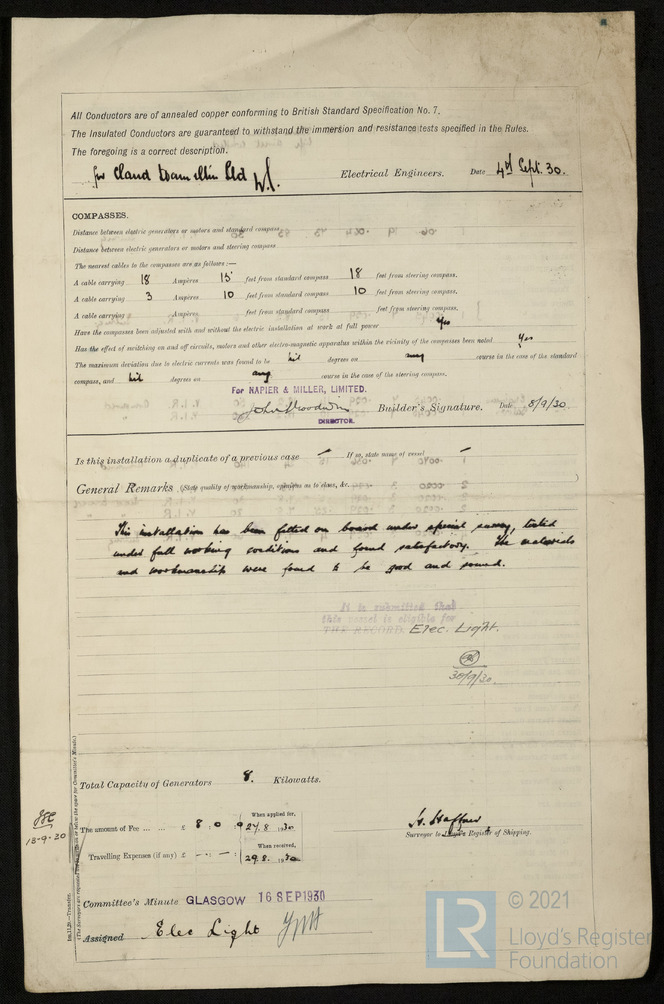 All Conductors are of annealed copper conforming to British Standard Specification No. 7.
The Insulated Conductors are guaranteed to withstand the immersion and resistance tests specified in the Rules.
The foregoing is a correct description.
for Claud Hamilton Ltd Electrical Engineers. Date 4th Sept. 30.
COMPASSES.
Distance between electric generators or motors and standard compass
Distance between electric generators or motors and steering compass
The nearest cables to the compasses are as follows:—
A cable carrying 18 Ampères 15 feet from standard compass 18 feet from steering compass.
A cable carrying 3 Ampères 10 feet from standard compass 10 feet from steering compass.
A cable carrying Ampères feet from standard compass feet from steering compass.
Have the compasses been adjusted with and without the electric installation at work at full power Yes
Has the effect of switching on and off circuits, motors and other electro-magnetic apparatus within the vicinity of the compasses been noted Yes
The maximum deviation due to electric currents was found to be nil degrees on any course in the case of the standard
compass, and nil degrees on any course in the case of the steering compass.
For NAPIER & MILLER, LIMITED.
Builder's Signature. Date 8/9/30.
DIRECTOR.
Is this installation a duplicate of a previous case — If so, state name of vessel —
General Remarks (State quality of workmanship, opinions as to class, &c.
This installation has been fitted on board under special survey, tested
under full working conditions and found satisfactory. The materials
and workmanship were found to be good and sound.
It is submitted that
this vessel is eligible for
THE RECORD. Elec. Light.
30/9/30.
Total Capacity of Generators 8. Kilowatts.
When applied for,
The amount of Fee ... ... £ 8 : 0 : 0 27.8.1930
When received,
Travelling Expenses (if any) £ 29.8.1930
Surveyor to Lloyd's Register of Shipping.
13-9-30
Committee's Minute GLASGOW 16 SEP 1930
Assigned Elec Light
1m,11,29.—Transfer.
LR
© 2021
Lloyd's Register
Foundation